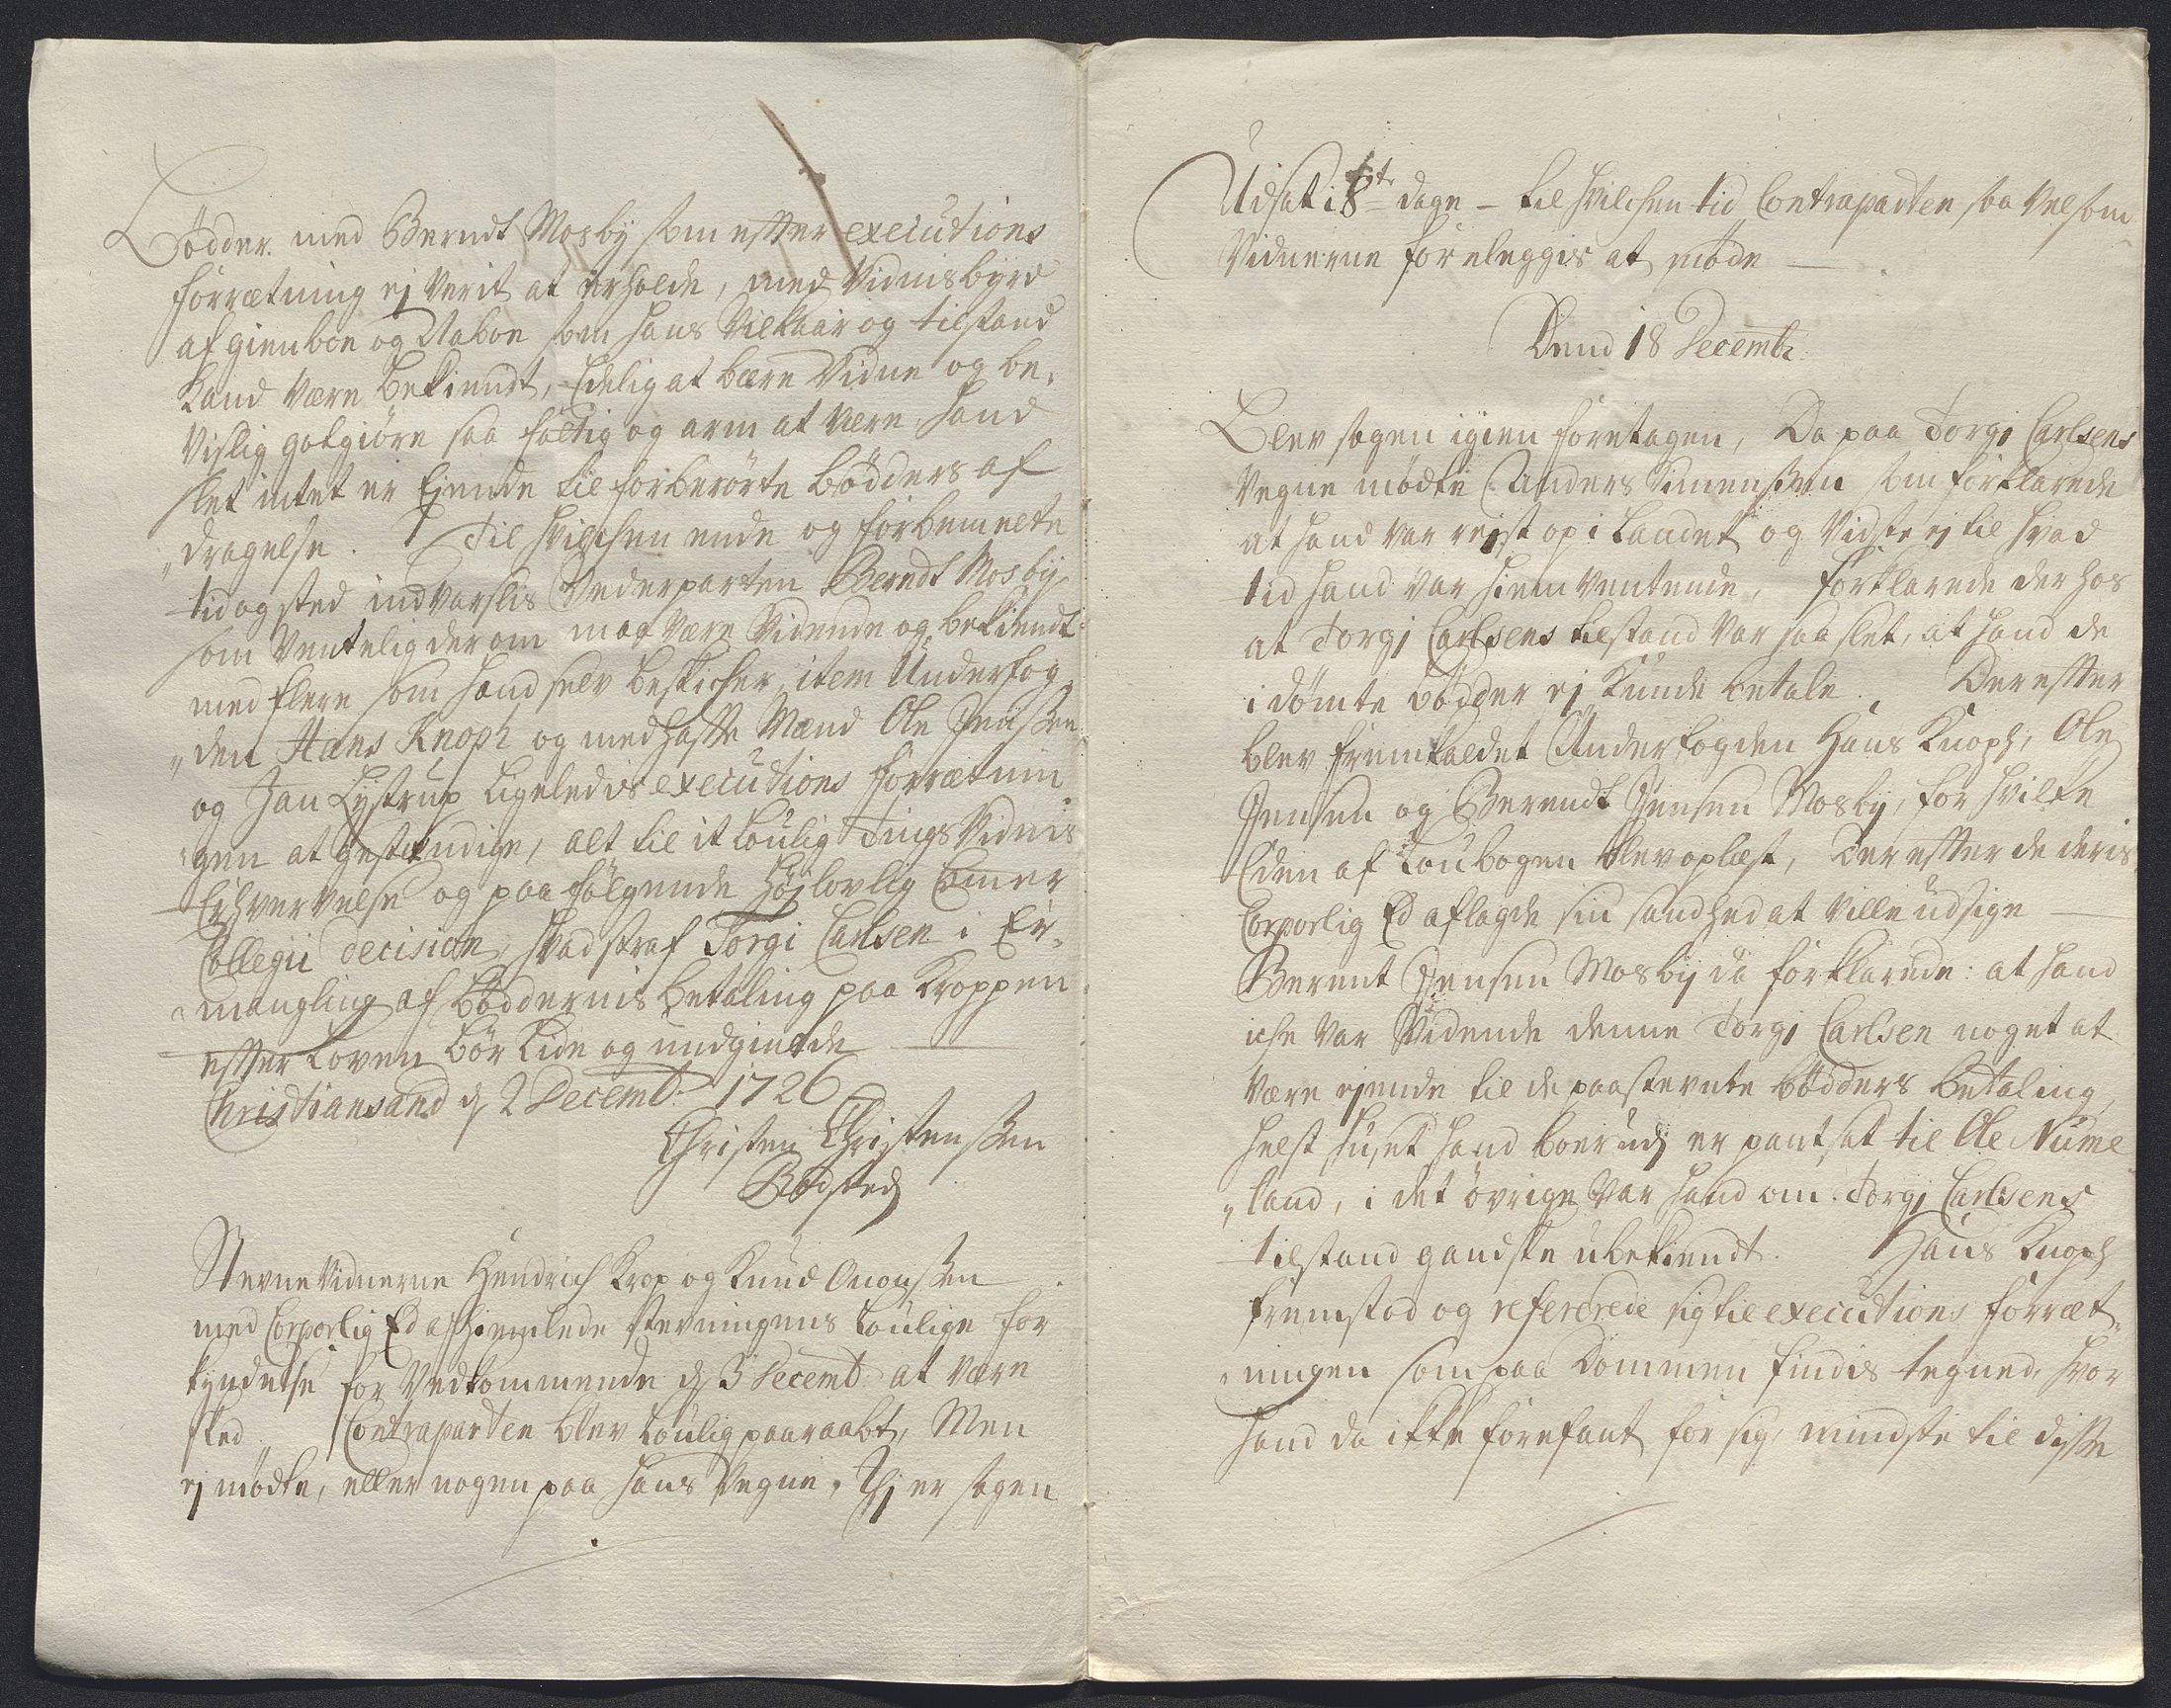 Bødder. med Berndt Mosby som efter executions
forretning ej verit at erholde, med Vidnisbyrd
af gienboe og Naboe som hans Vilkaar og tilstand
kand være bekiendt, Edelig at bære Vidne og be„
vislig gotgiøre saa fattig og arm at være hand
slet intet er Ejende til forberørte bødders af
„dragelse. Til hvilchen ende og forbemelte
tid og sted indvarslis Vederparten Berndt Mosby
som Ventelig derom maa være Vidende og bekiendt
med flere som hand selv beskicher, item Underfog„
„den Hans Knoph og medhafte Mænd Ole Jenssen
og Jan Lystrup ligeledis executions forretnin„
„gen at gestendige, alt til it loulig Tings Vidnis
Erhvervelse og paafølgende Høylovlig Cammer
Collegii decision, hvad straf Torgi Carlsen i Er„
„mangling af bøddernis betaling paa kroppen
efter loven bør lide og undgielde
Christiansand d 2 Decemb. 1726
Christen Christenssen
Bødsted
Stevne Vidnerne Hendrich Krop og Knud Anonssen
med Corporlig Ed afhiemlede stevningens loulige for
kyndelse for Vedkommende d 3 Decemb. at være
skeed. Contraparten blev loulig paaraabt, Men
ej mødte, eller nogen paa hans Vegne. Thi er sagen
Udsat i 8te dage - til hvilchen tid Contraparten saa vel som
Vidnerne foreleggis at møde
Dend 18 Decembr.
Blev sagen igien foretagen, Da paa Torgi Carlsens
Vegne mødte Anders Simenssen som forklarede
at hand var rejst op i Landet og Vidste ej til hvad
tid hand var hiem ventende, forklarede der hos
at Torgi Carlsens tilstand var saa slet, at hand de
idømte bødder ej kunde betale. Der efter
blev fremkaldet Underfogden Hans Knoph, Ole
Jensen og Berendt Jensen Mosby, for hvilke
Eden af Loubogen blev oplæst, Der efter de deris
Corporlig Ed aflagde sin sandhed at ville udsige
Berent Jensen Mosby da forklarede: at hand
iche var Vidende denne Torgi Carlsen noget at
være ejende til de paastevnte bødders betaling,
helst huset hand boer udj er pantsat til Ole Nume
„land, i det øvrige var hand om Torgi Carlsens
tilstand gandske ubekiendt. Hans Knoph
fremstod og refererede sig til executions forret„
„ningen som paa Dommen findis tegned, hvor
hand da ikke forefant for sig, mindste til disse